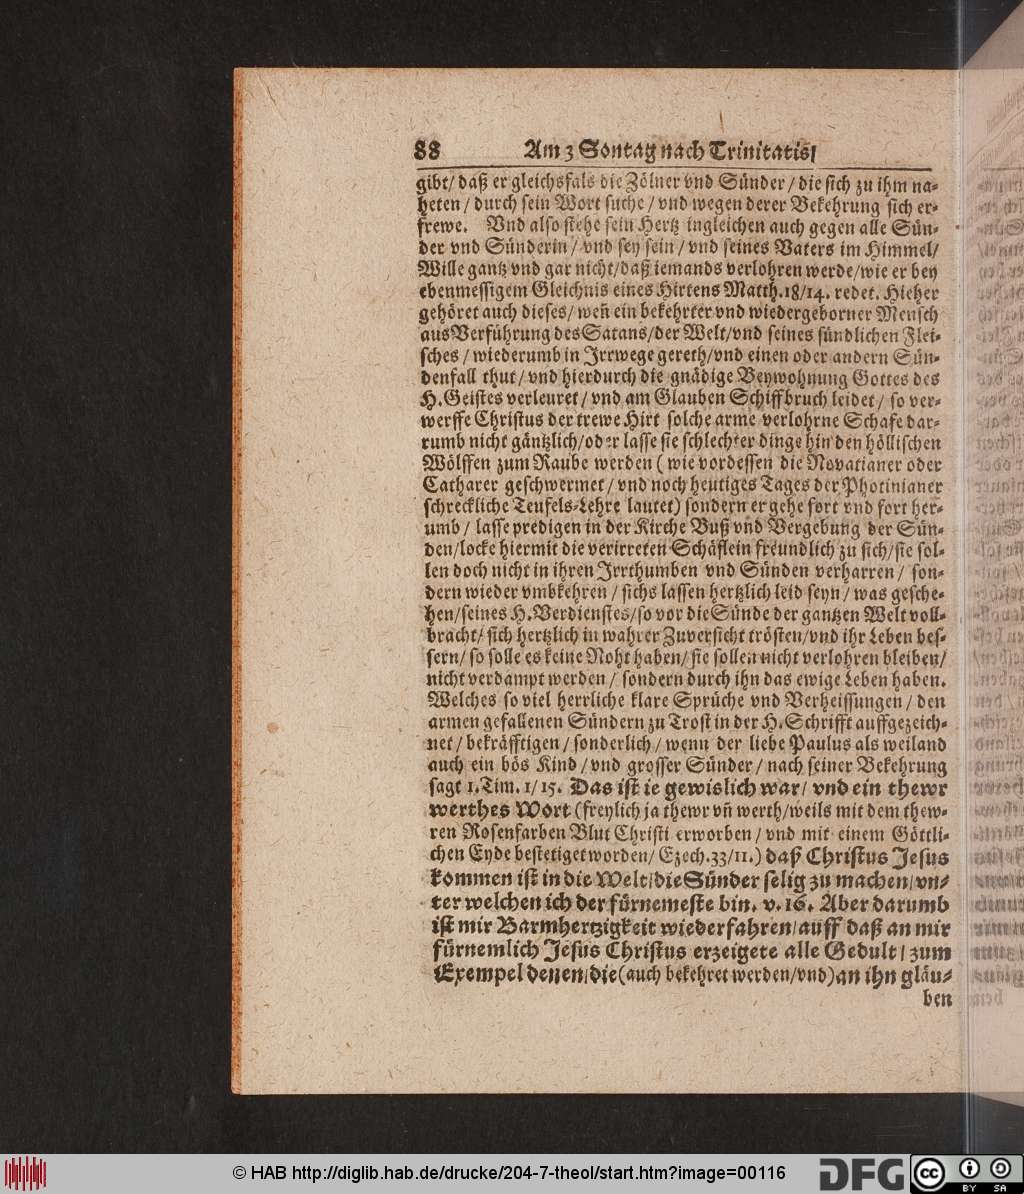 88 Am 3 Sontag nach Trinitatis/
gibt/ daß er gleichsfals die Zölner vnd Sünder / die sich zu ihm na-
heten / durch sein Wort suche / vnd wegen derer Bekehrung sich er-
frewe. Vnd also stehe sein Hertz ingleichen auch gegen alle Sün-
der vnd Sünderin / vnd sey sein / vnd seines Vaters im Himmel/
Wille gantz vnd gar nicht/daß iemands verlohren werde/wie er bey
ebenmessigem Gleichnis eines Hirtens Matth.18/14. redet. Hieher
gehöret auch dieses/ weñ ein bekehrter vnd wiedergeborner Mensch
aus Verführung des Satans/der Welt/vnd seines sündlichen Flei-
sches / wiederumb in Jrrwege gereth/vnd einen oder andern Sün-
denfall thut / vnd hierdurch die gnädige Beywohnung Gottes des
H.Geistes verleuret / vnd am Glauben Schiffbruch leidet / so ver-
werffe Christus der trewe Hirt solche arme verlohrne Schafe dar-
rumb nicht gäntzlich/oder lasse sie schlechter dinge hin den höllischen
Wölffen zum Raube werden ( wie vordessen die Novatianer oder
Catharer geschwermet / vnd noch heutiges Tages der Photinianer
schreckliche Teufels-Lehre lautet) sondern er gehe fort vnd fort her-
umb / lasse predigen in der Kirche Buß vnd Vergebung der Sün-
den/locke hiermit die verirreten Schäflein freundlich zu sich/sie sol-
len doch nicht in ihren Jrrthumben vnd Sünden verharren / son-
dern wieder vmbkehren / sichs lassen hertzlich leid seyn / was gesche-
hen/seines H.Verdienstes/so vor die Sünde der gantzen Welt voll-
bracht/ sich hertzlich in wahrer Zuversicht trösten/vnd ihr Leben bes-
sern/ so solle es keine Noht haben/ sie sollen nicht verlohren bleiben/
nicht verdampt werden / sondern durch ihn das ewige Leben haben.
Welches so viel herrliche klare Sprüche vnd Verheissungen / den
armen gefallenen Sündern zu Trost in der H.Schrifft auffgezeich-
net / bekräfftigen / sonderlich / wenn der liebe Paulus als weiland
auch ein bös Kind / vnd grosser Sünder / nach seiner Bekehrung
sagt 1.Tim. 1/ 15. Das ist ie gewislich war/ vnd ein thewr
werthes Wort (freylich ja thewr vñ werth/weils mit dem thew-
ren Rosenfarben Blut Christi erworben / vnd mit einem Göttli-
chen Eyde bestetiget worden/ Ezech.33/11.) daß Christus Jesus
kommen ist in die Welt/die Sünder selig zu machen/vn-
ter welchen ich der fürnemeste bin. v. 16. Aber darumb
ist mir Barmhertzigkeit wiederfahren/auff daß an mir
fürnemlich Jesus Christus erzeigete alle Gedult / zum
Exempel denen/die (auch bekehret werden/vnd) an ihn gläu-
ben
© HAB http://diglib.hab.de/drucke/204-7-theol/start.htm?image=00116
DFG
cc BY SA